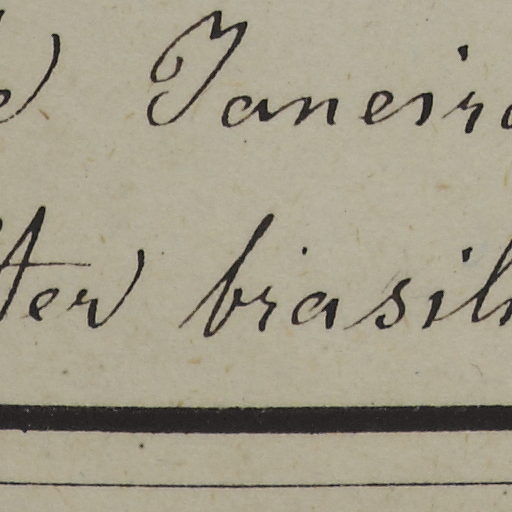 Janeiro
ter brasil